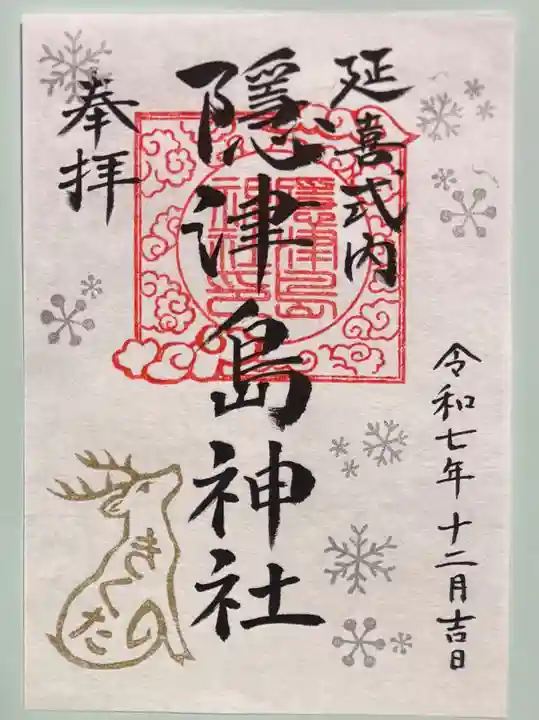 延喜式内
奉拝
隠津島神社
隠津島
神社之印
令和七年十二月吉日
きくたの